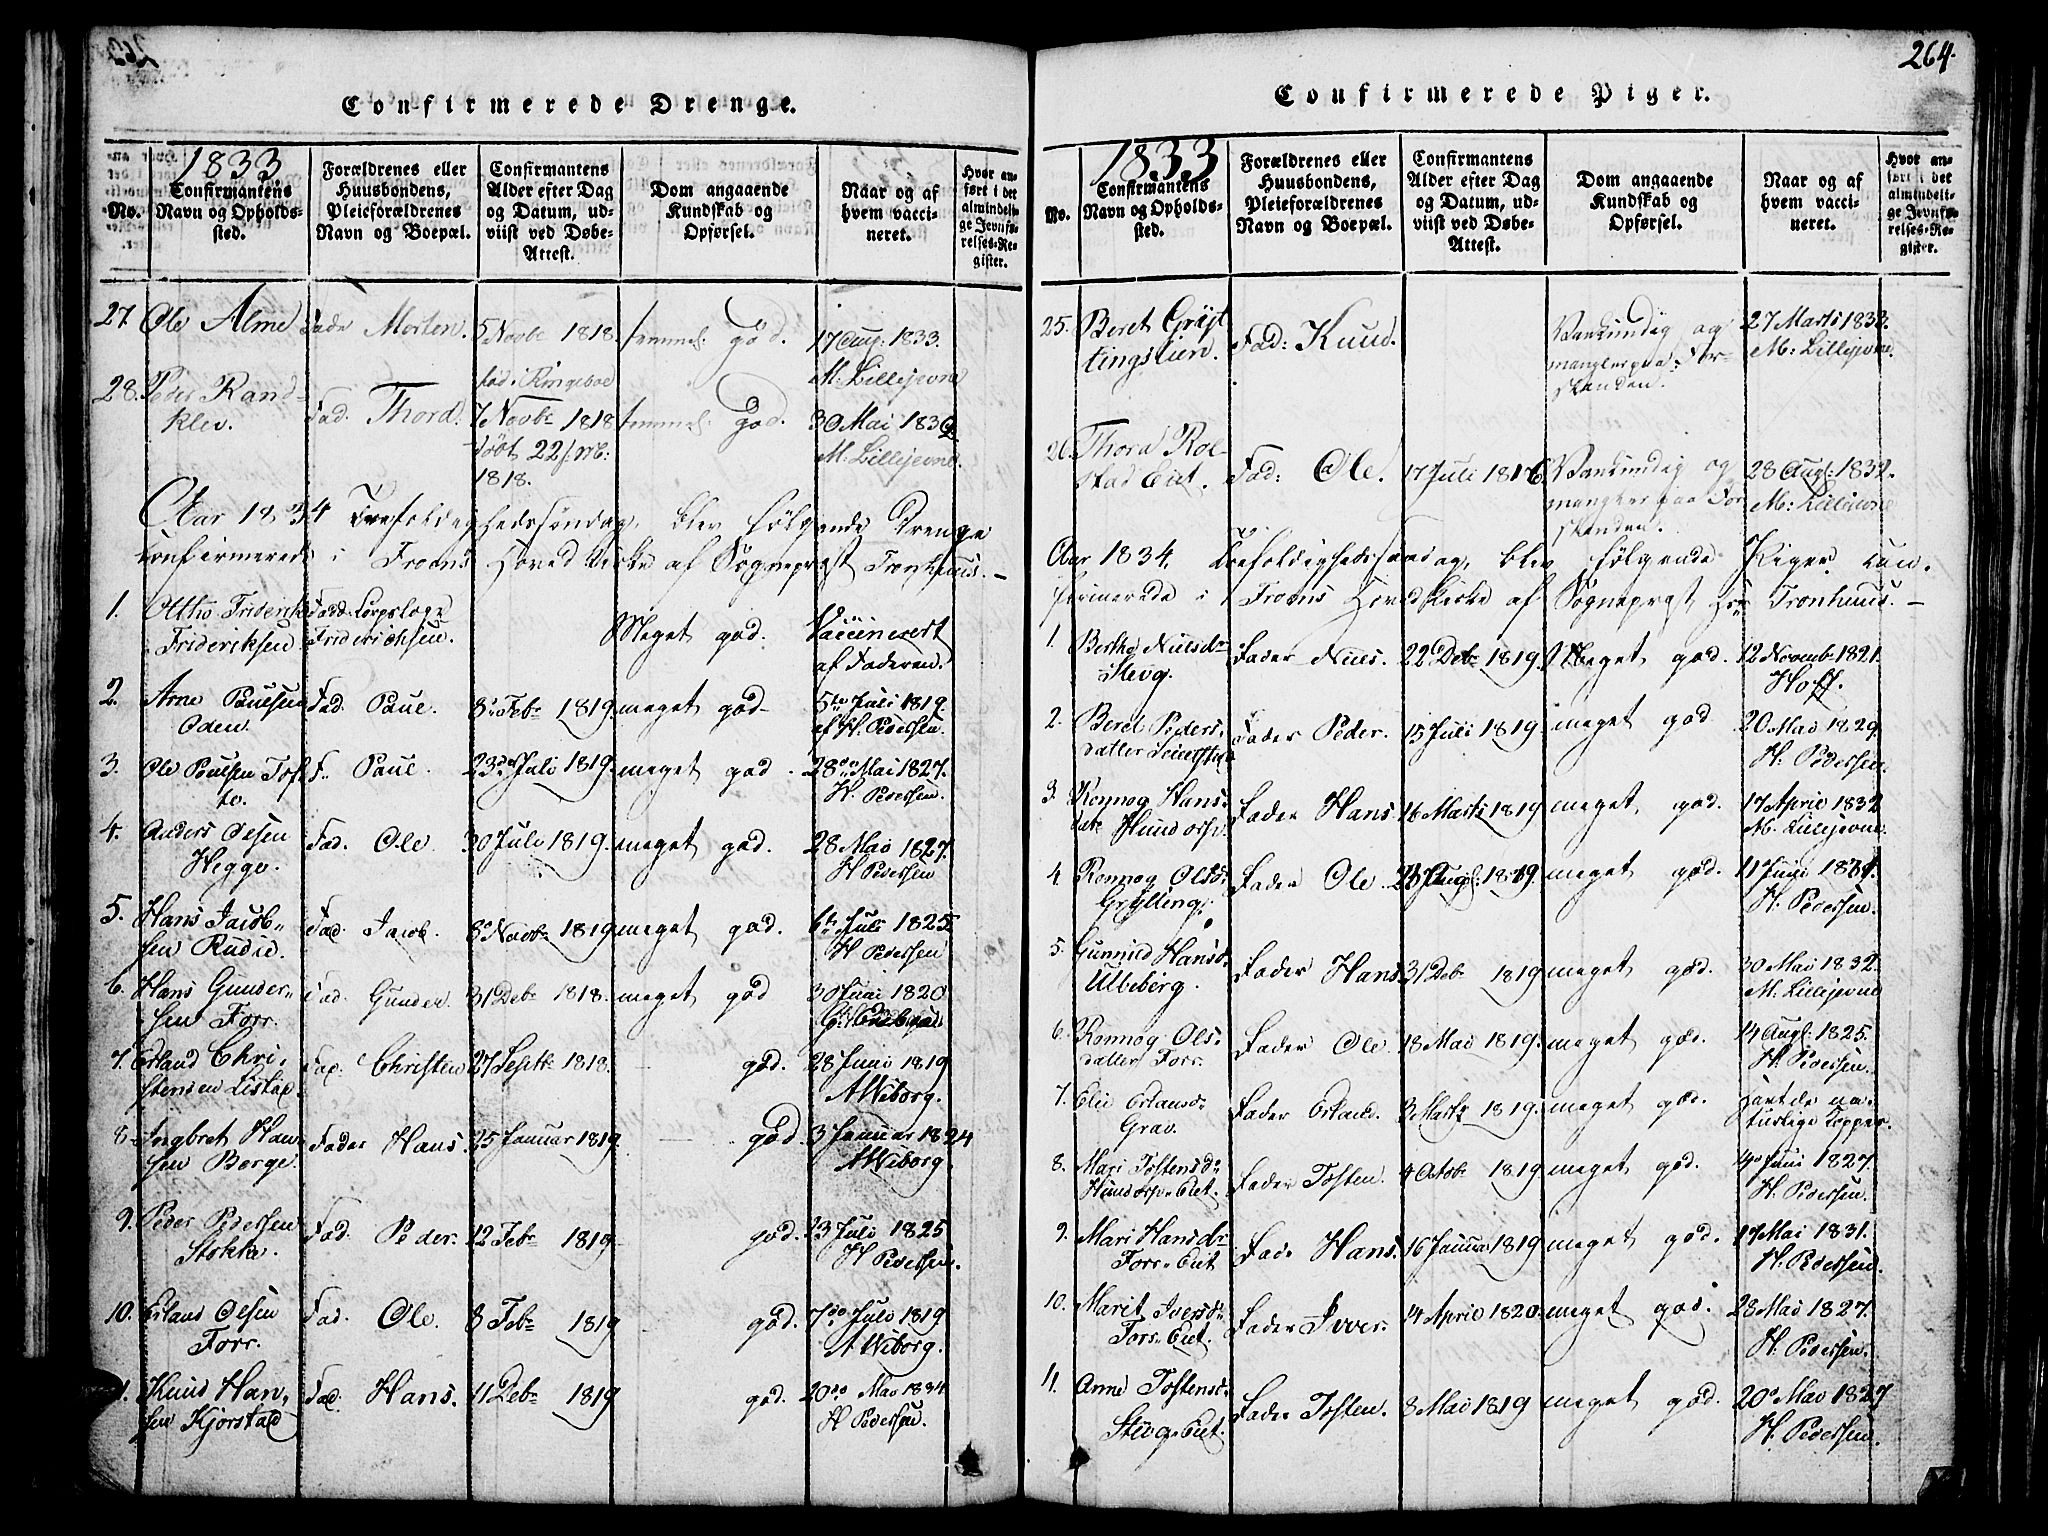 264.
Confirmerede Drenge.
1833
No.
Confirmantens Navn og Opholds-sted.
Forældrenes eller Huusbondens, Pleieforældrenes Navn og Boepæl.
Confirmantens Alder efter Dag og Datum, ud-viist ved Døbe-Attest.
Dom angaaende Kundskab og Opførsel.
Naar og af hvem vacci-neret.
Hvor an-ført i det almindeli-ge Jevnfø-relses-Re-gister.
27. Ole Alme Fader Morten. 5 Novbr 1818. temmel: god. 17 Aug: 1833.
fød i Ringeboe M: Lillejevne
28. Peder Rand-klev. Fad: Thord. 7 Novbr 1818 temmel: god. 30 Mai 1832
døbt 22 1818. M: Lillejevne.
Aar 1834 Trefoldighedssøndag, blev følgende Drenge
confirmerede i Froens Hoved Kirke af Sogneprest Tronhuus. –
1. Ottho Friderich Frideriksen Fad: Corpslæge Friderichsen. Meget god. Vaccineret af Faderen.
2. Arne Poulsen Oden. Fad. Poul. 8de Febr 1819. meget god 5te Juli 1819. af H. Pedersen.
3. Ole Poulsen Tofte. F. Poul. 23de Juli 1819. meget god. 28de Mai 1827. H. Pedersen.
4. Anders Olsen Hegge. Fad. Ole. 30 Juli 1819. meget god. 28 Mai 1827. H Pedersen
5. Hans Jacobsen Rudie. Fad. Jacob. 8de Novbr 1819 meget god. 6te Juli 1825. H Pedersen
6. Hans Gundersen Forr. Fad. Gunder. 31 Debr 1818. meget god 30 Juni 1820
7. Erland Christensen Listad. Fad. Christen 27 Septbr 1818. – god. 28 Juni 1819 A Wiborg.
8. Ingbret Hansen Berge. Fader Hans. 25 Januar 1819. – god. 3 Januar 1824 A Wiborg.
9. Peder Pedersen Stokke. Fad. Peder. 12 Febr 1819 god. 23 Juli 1825 H Pedersen.
10. Erland Olsen Forr. Fad. Ole. 8 Febr 1819 – god. 7de Juli 1819 A Wiborg.
11. Knud Hansen Kjorstad Fad. Hans. 11 Debr 1819 god. 20de Mai 1834 H Pedersen.
Confirmerede Piger.
1833
No.
Confirmantens Navn og Opholds-sted.
Forældrenes eller Huusbondens, Pleieforældrenes Navn og Boepæl.
Confirmantens Alder efter Dag og Datum, ud-viist ved Døbe-Attest.
Dom angaaende Kundskab og Opførsel.
Naar og af hvem vacci-neret.
Hvor an-ført i det almindeli-ge Jevnfø-relses-Re-gister.
25. Beret Grytlingslien. Fad: Knud. Vankundig og mangler paa Forstanden. 27 Marts 1833. M: Lillejevne.
26. Thora Rolstad Eiet. Fad: Ole. 17 Juli 1816 Vankundig og mangler paa Forstanden. 28 Augs: 1832. M: Lillejevne
Aar 1834, Trefoldighedssøndag, blev følgende Piger con-
firmerede i Froens Hoved Kirke af Sogneprest Hr Tronhuus. –
1. Berthe Nielsdr Stevg. Fader Niels. 22 Debr 1819. Meget god. 12 Novembr 1821. Hoff.
2. Beret Pedersdatter Fader Peder. 15 Juli 1819 meget god 20 Mai 1829. H. Pedersen.
3. Ronnog Hansdatr Hundorp. Fader Hans. 16 Marts 1819 meget god. 17 April 1832 M. Lillejevne.
4. Ronnog Olsd: Gryting. Fader Ole. Augs: 1819. meget god. 11 Juni 1831. H. Pedersen.
5. Gunnild Hansd: Ulleberg. Fader Hans 31 Debr 1819 meget god. 30 Mai 1832. M: Lillejevne
6. Ronnog Olsdatter Forr. Fader Ole 18 Mai 1819. meget god. 14 Augs: 1825. H. Pedersen.
7. Eli Erlandsd: Grav. Fader Erland. 3 Marts 1819. meget god. havt de naturlige Kopper.
8. Mari Tostensdr Hundorp Eiet. Fader Tosten. 4 Octobr 1819 meget god. 14de Juni 1827. H. Pedersen.
9. Mari Hansdr Forr Eiet Fader Hans. 16 Januar 1819 meget god. 17 Mai 1831. H. Pedersen.
10. Marit Iversdr Forr Eiet. Fader Iver. 14 April 1820. meget god. 28 Mai 1827. H. Pedersen.
11. Anne Tostensd: Stevg Eiet. Fader Tosten. 8 Mai 1819 meget god. 20de Mai 1827 H. Pedersen.